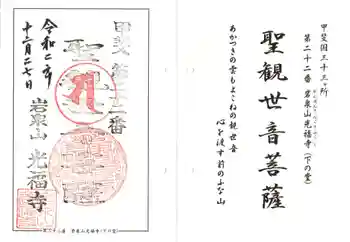 甲斐国三十三ヶ所
第二十二番 岩泉山光福寺(下の堂)
聖観世音菩薩
あかつきの雲もよこねの観世音
心を渡す前のふな山
甲斐第廿二番
聖観世音
岩泉山 光福寺
令和二年
十二月二七日
第二十二番 岩泉山光福寺(下の堂)